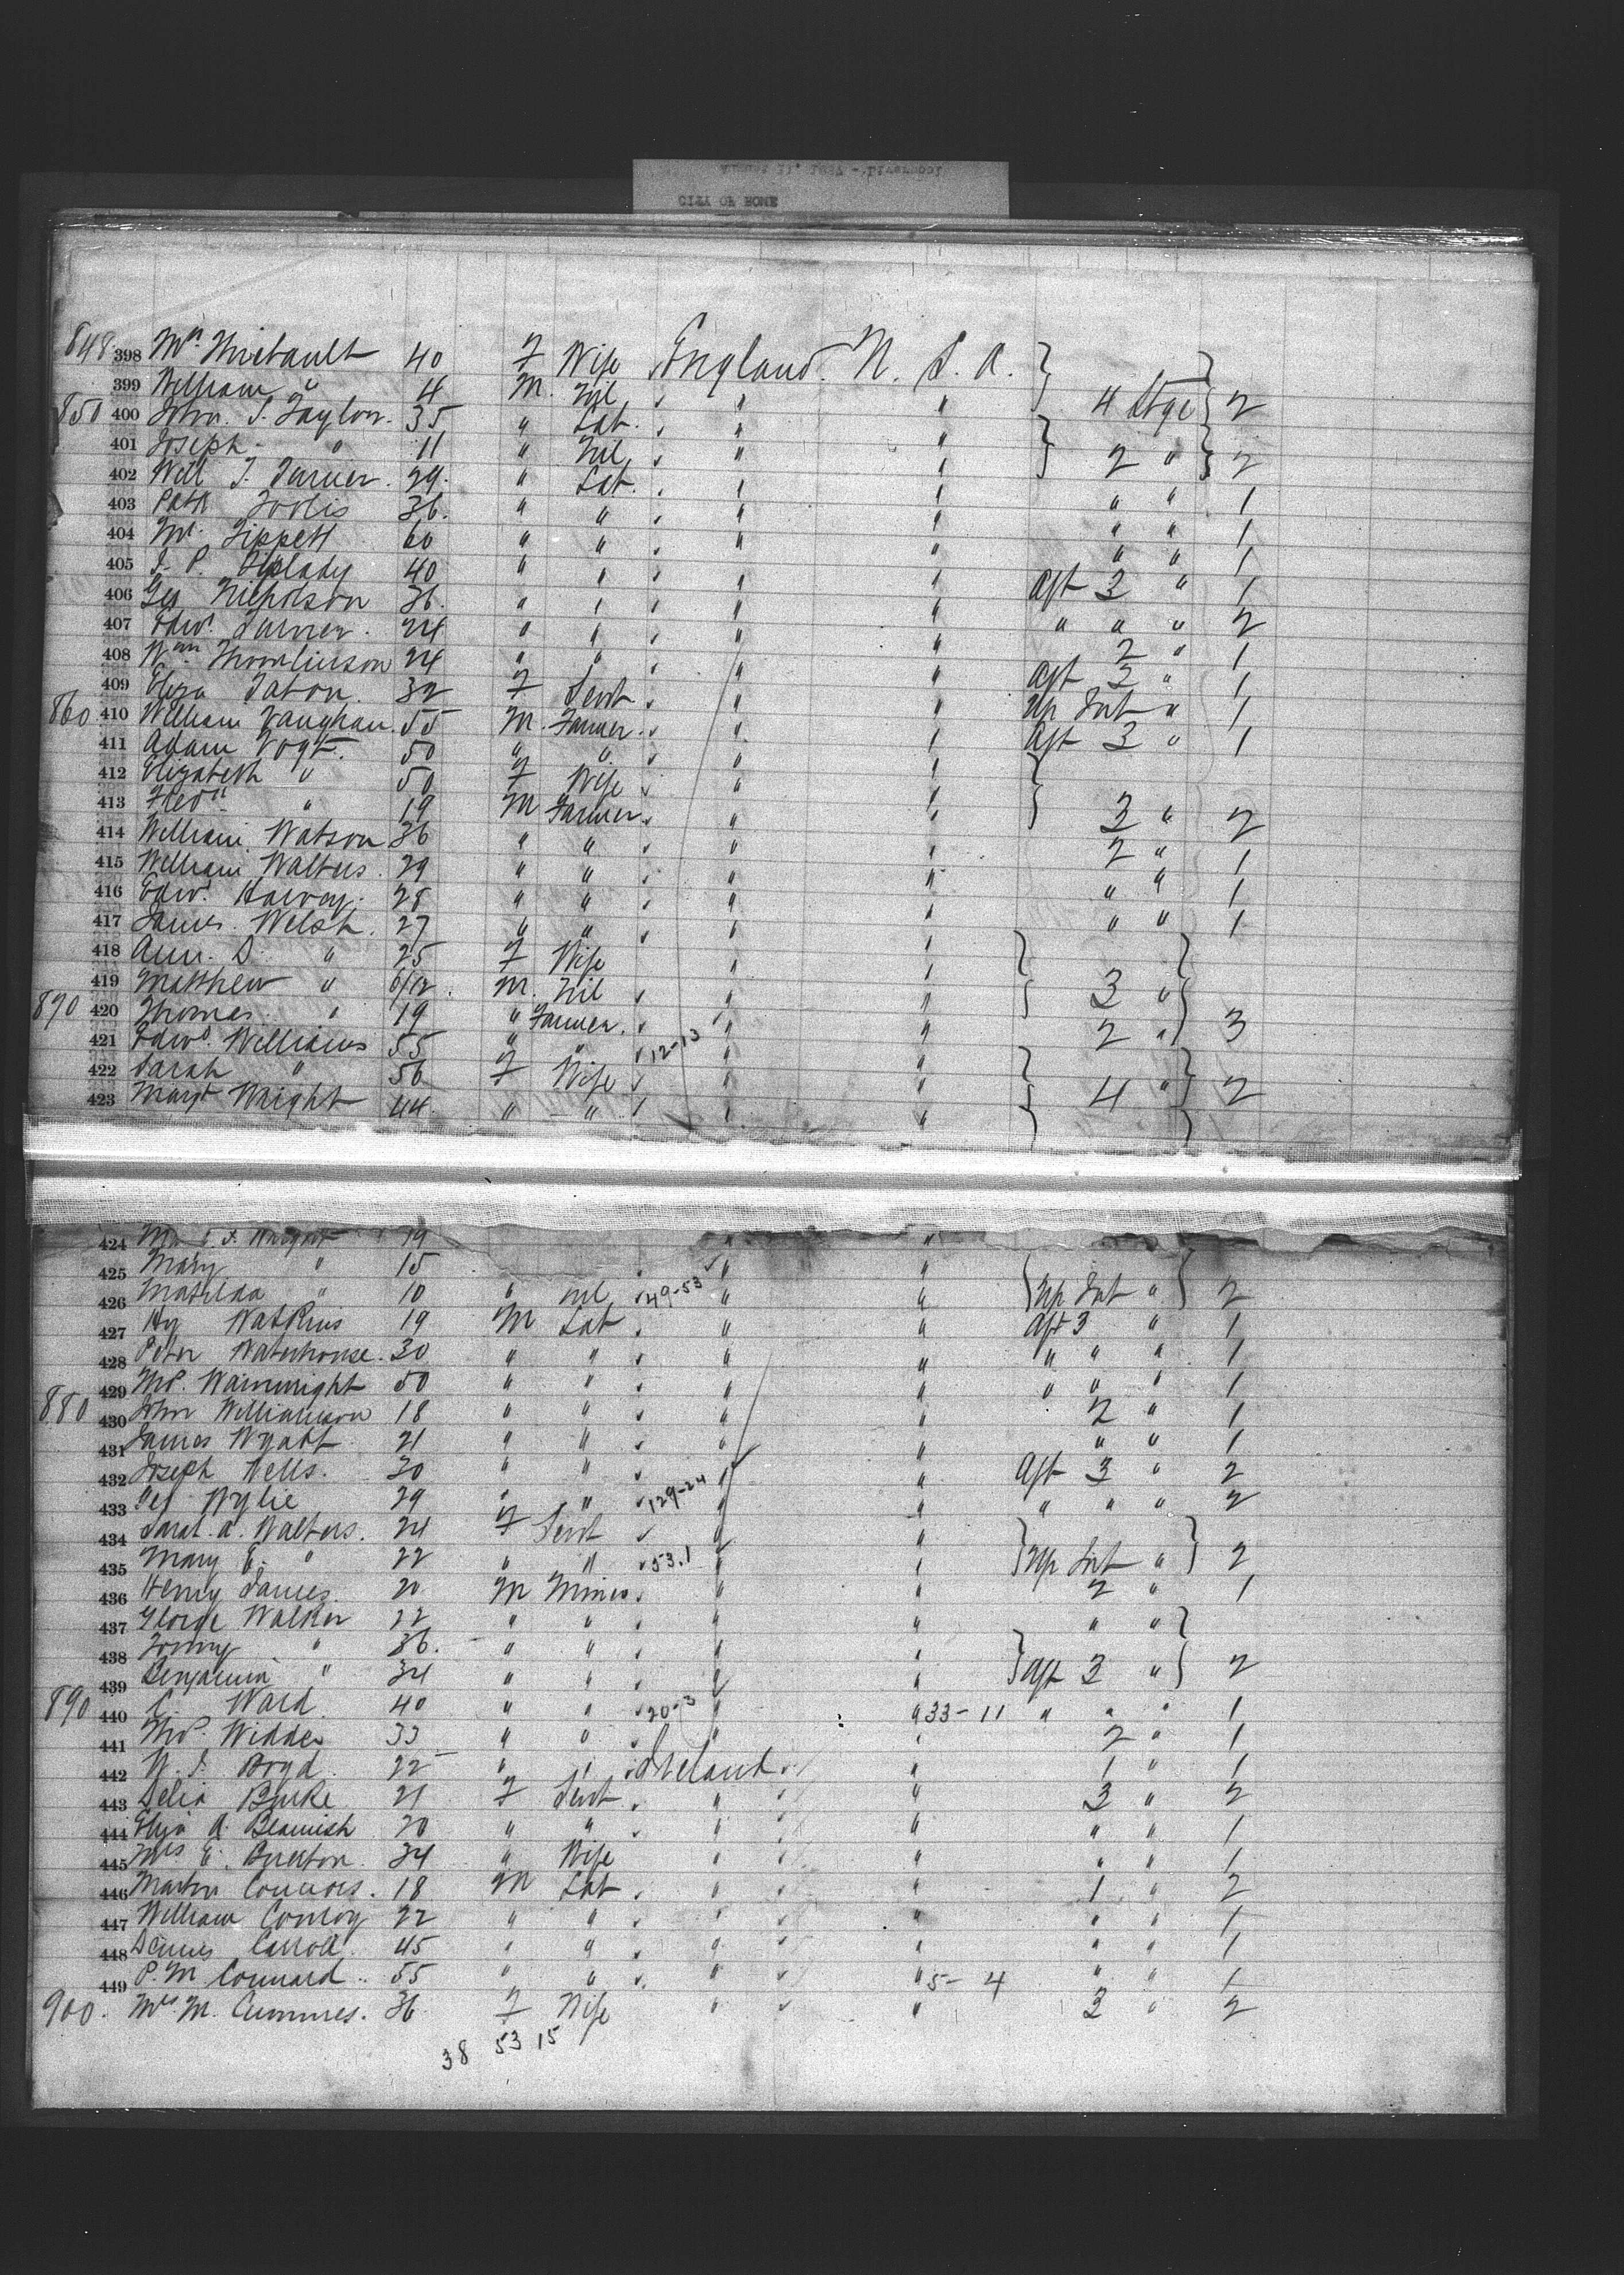 CITY OF ROME
848. 398 Mrs. Thiebault 40 F Wife England. U. S. A.
399 William " 4 M. Nil " " 4 Stge 2
850 400 John. S. Taylor. 35 " Lab. " "
401 Joseph " 11 " Nil " " 2 " 2
402 Will J. Turner. 29. " Lab. " " " " 1
403 Patk 36. " " " " " " 1
404 Mr. Tippett 60 " " " " " " 1
405 40 " " " " Aft 3 " 1
406 Geo Nicholson 36. " " " " " " " 2
407 Edwd. Turner. 24 " " " " 2 " 1
408 Wm Thomlinson 24 " " " " Aft 3 " 1
409 Eliza 32 F Servt " " Up Int " 1
860 410 William Vaughan. 55 M. Farmer. " " Aft 3 " 1
411 Adam Vogt. 50 " " " "
412 Elizabeth " 50 F Wife " "
413 Fredk " 19 M Farmer. " " 3 " 2
414 William Watson 36 " " " " 2 " 1
415 William Walters. 29 " " " " " " 1
416 Edwd. Harvey. 28 " " " " " " 1
417 James Welsh. 27 " " " "
418 Ann. D. " 25 F Wife " "
419 Matthew " 6/12. M. Nil " " 3 "
870 420 Thomas " 19 " Farmer. " " 2 " 3
421 Edwd. Williams 55 " " 12-13 " "
422 Sarah " 56 F Wife " " 4 " 2
423 Margt Wright 44. " " " "
424 Wright 19 " "
425 Mary " 15 " "
426 Matilda " 10 " nil 49-53 " " Up Int " 2
427 Hy Watkins 19 M Lab " " Aft 3 " 1
428 Peter Waterhouse. 30 " " " " " " " 1
429 Thos. Wainwright 50 " " " " " " " 1
880 430 John Williamson 18 " " " " 2 " 1
431 James Wyatt 21 " " " " " " 1
432 Joseph Wells. 30 " " " " Aft 3 " 2
433 Wylie 29 " " 129-24 " " " " " 2
434 Sarah. A. Walters. 24 F Servt " "
435 Mary E. " 22 " " 53.1 " " Up Int " 2
436 Henry James 20 M Miner " " 2 " 1
437 George Walker 22 " " " " " "
438 " 36. " " " "
439 Benjamin " 34 " " " " Aft 3 " 2
890 440 C. Ward 40 " " 20-3 " " 33-11 " " " 1
441 Thos. Widder 33 " " " " 2 " 1
442 W. J. Boyd. 22 " " Ireland " 1 " 1
443 Delia Burke 21 F Servt " " 3 " 2
444 Eliza A. Beamish 20 " " " " " " 1
445 Mrs E. Buxton. 34 " Wife " " " " 1
446 Martin Connors. 18 M Lab " " 1 " 2
447 William Conroy 22 " " " " " " 1
448 Carroll. 45 " " " " " " 1
449 P. M. Connard.. 55 " " " " 5- 4 " " 1
900. Mrs. M. 36 F Wife " " 3 " 2
38 53 15